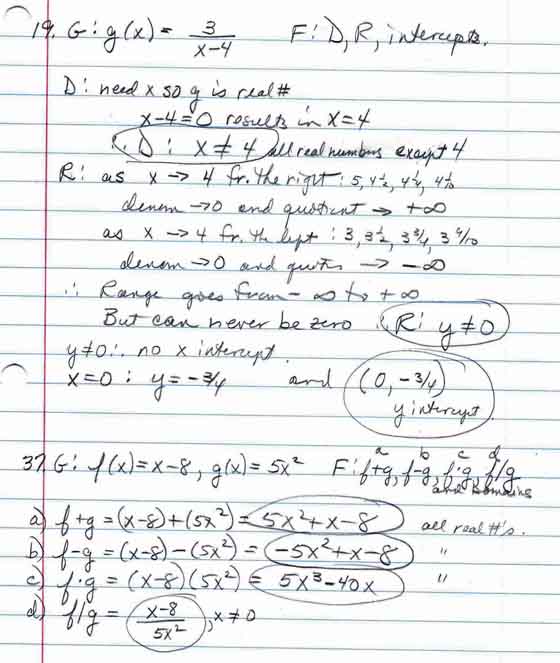 19. G: g(x) = 3/(x-4) F: D, R, intercepts.
D: need x so g is real #
x-4=0 results in x=4
∴ D: x ≠ 4 all real numbers except 4
R: as x → 4 fr. the right: 5, 4 1/2, 4 1/4, 4 1/10
denom → 0 and quotient → +∞
as x → 4 fr. the left: 3, 3 1/2, 3 3/4, 3 9/10
denom → 0 and quotn → -∞
∴ Range goes from -∞ to +∞
But can never be zero ∴ R: y ≠ 0
y≠0 ∴ no x intercept.
x=0: y = -3/4 and (0, -3/4)
y intercept
a b c d
37. G: f(x) = x-8, g(x) = 5x² F: f+g, f-g, f·g, f/g
and Domains
a) f+g = (x-8)+(5x²) = 5x²+x-8 all real #'s.
b) f-g = (x-8)-(5x²) = -5x²+x-8 "
c) f·g = (x-8)(5x²) = 5x³-40x "
d) f/g = (x-8)/5x², x≠0